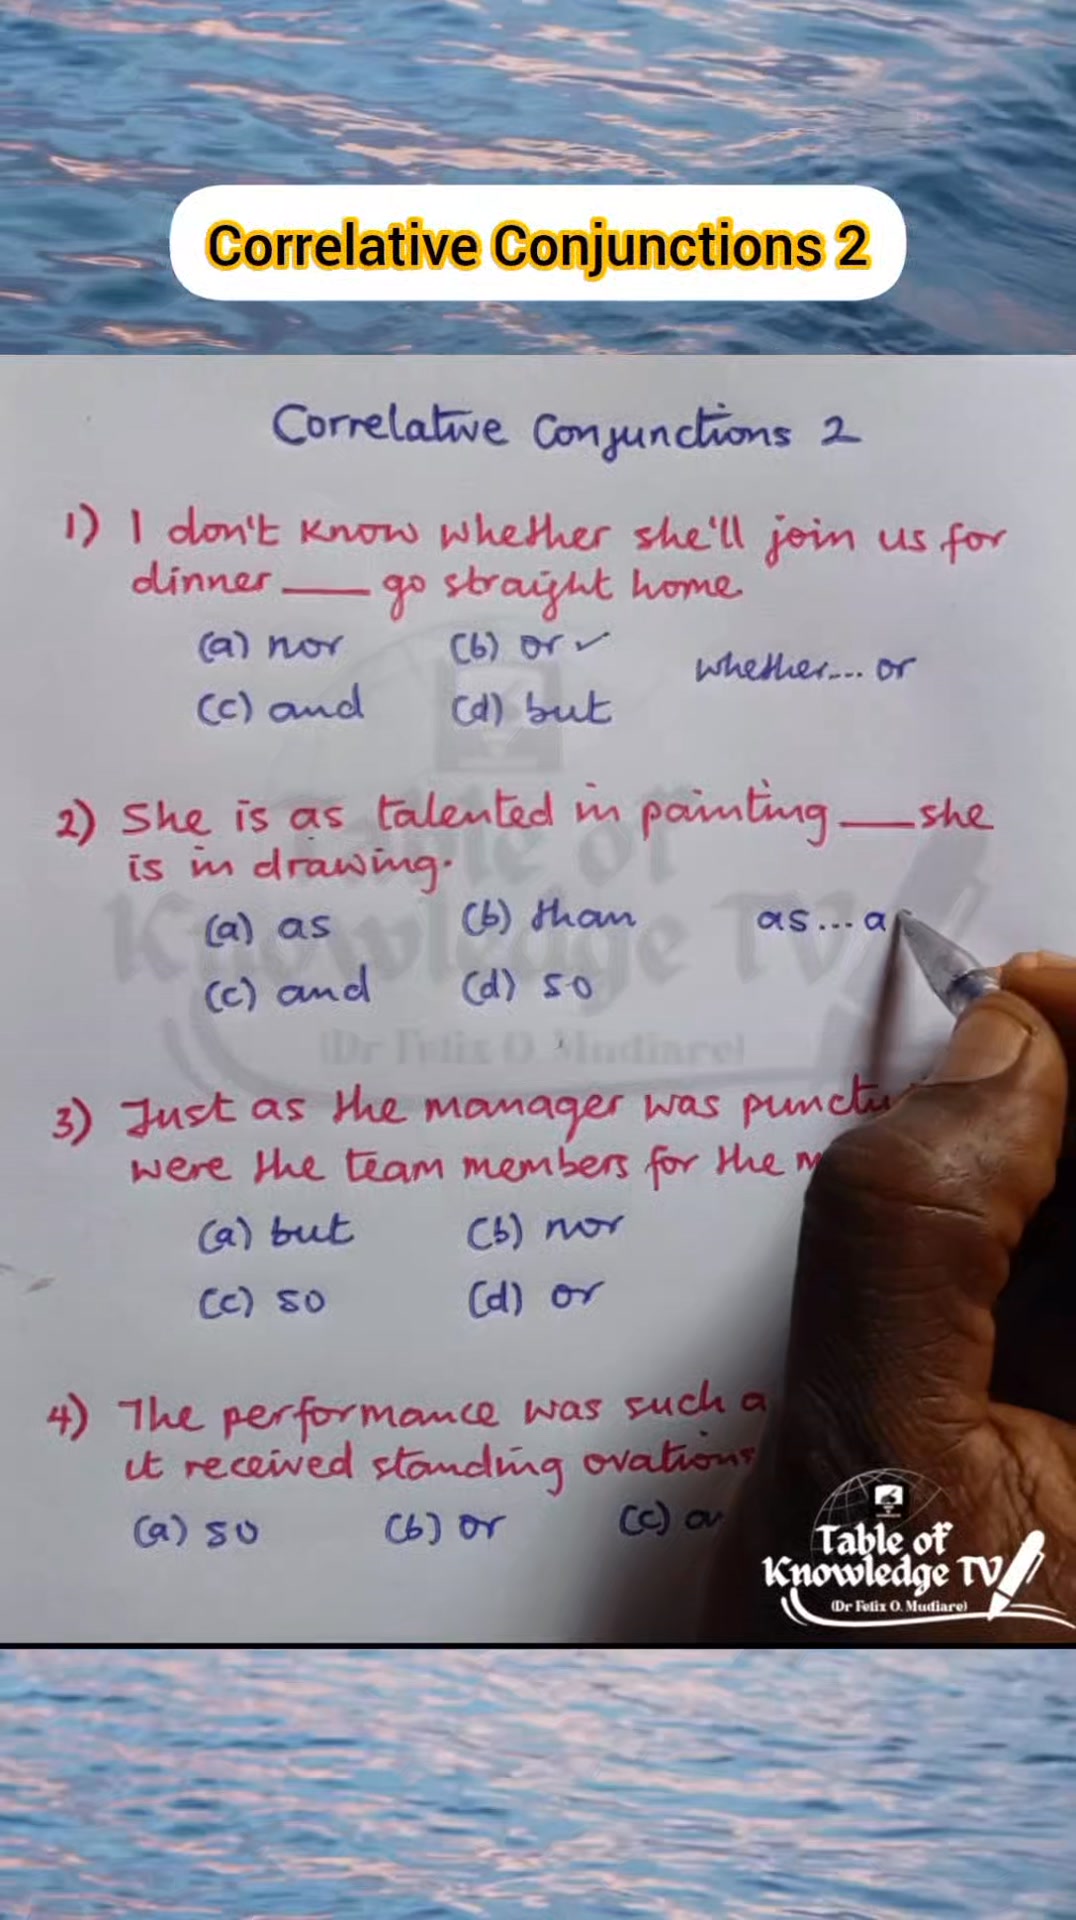 Correlative Conjunctions 2
Correlative Conjunctions 2
1) I don't know whether she'll join us for
dinner ___ go straight home.
(a) nor (b) or ✓
whether.... or
(c) and (d) but
2) She is as talented in painting ___ she
is in drawing.
(a) as (b) than as... a
(c) and (d) so
3) Just as the manager was
were the team members for the
(a) but (b) nor
(c) so (d) or
4) The performance was such a
it received standing ovations
(a) so (b) or (c)
Table of
Knowledge TV
(Dr Felix O. Mudiare)
Table of
Knowledge TV
(Dr Felix O. Mudiare)